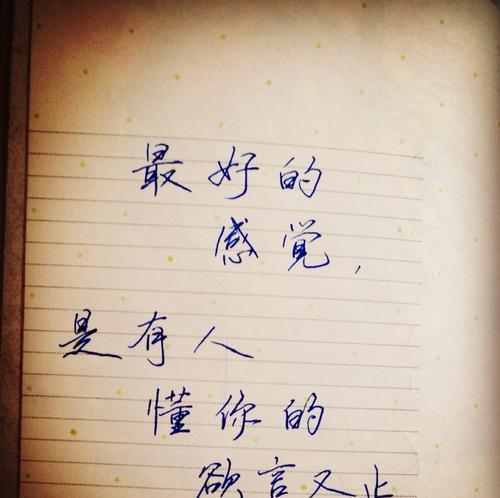 最好的
感觉，
是有人
懂你的
欲言又止